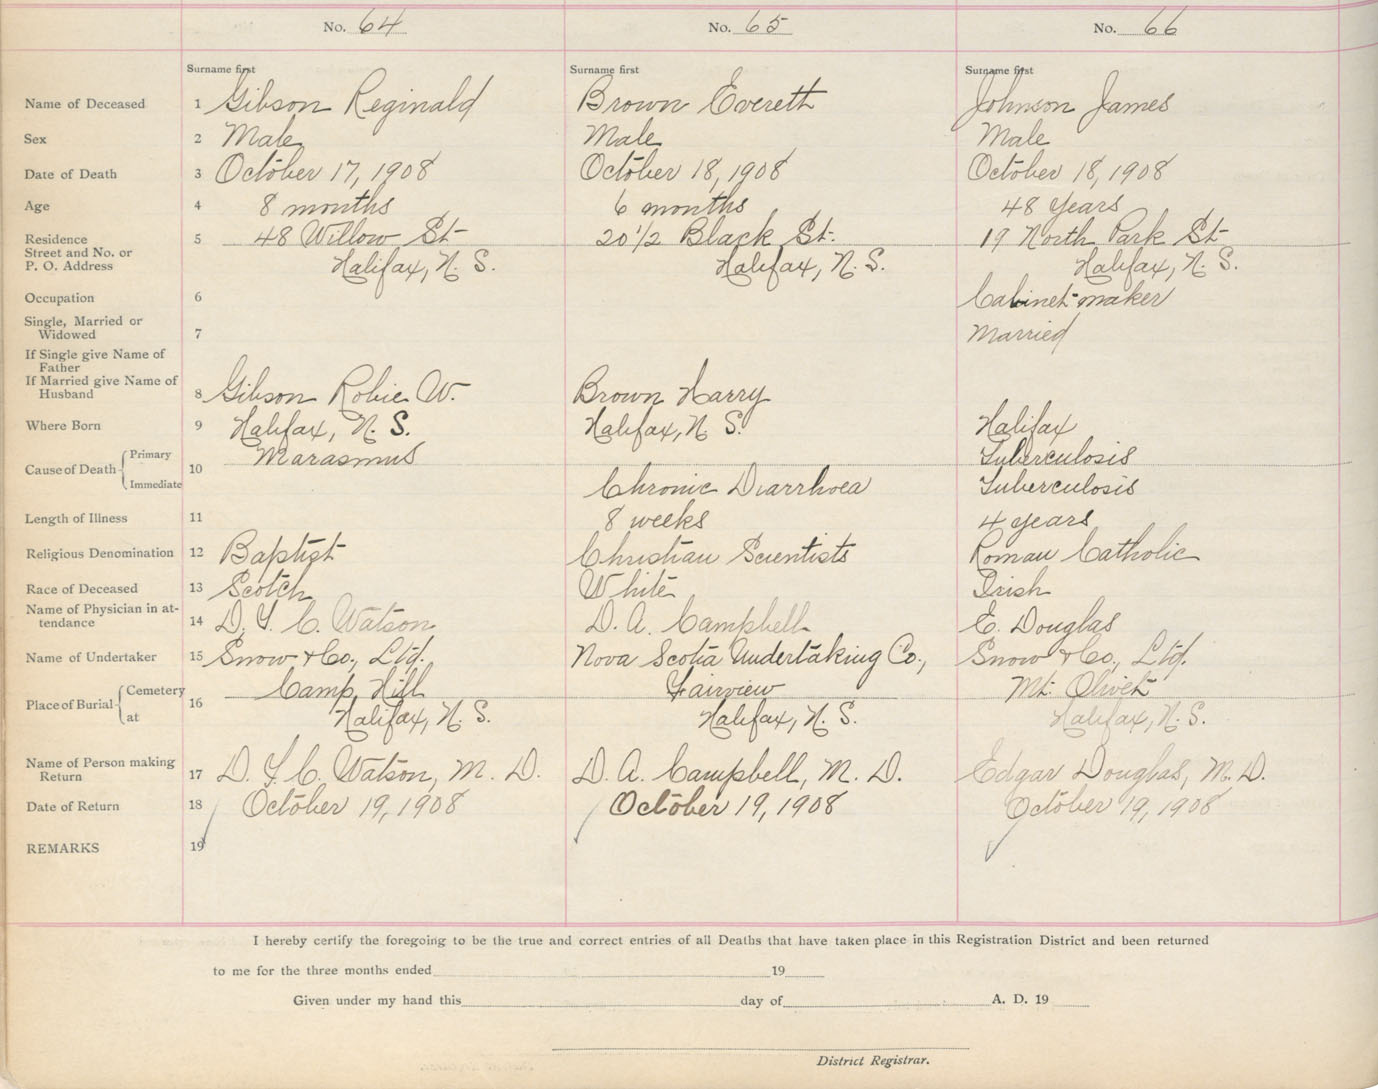 No. 64 No. 65 No. 66
Surname first Surname first Surname first
Name of Deceased 1 Gibson Reginald BrownEvereth Johnson James
Sex 2 Male Male Male
Date of Death 3 October 17, 1908 October 18, 1908 October 18, 1908
Age 4 8 months 6 months 48 years
Residence 5 48 Willow St 20 1/2 Black St. 19 North Park St
Street and No. or
P. O. Address Halifax, N. S. Halifax, N. S. Halifax, N. S.
Occupation 6 Cabinet-maker
Single, Married or
Widowed 7 Married
If Single give Name of
Father
If Married give Name of
Husband 8 Gibson Robie W. Brown Harry
Where Born 9 Halifax, N. S. Halifax, N. S. Halifax
Cause of Death Primary 10 Marasmus Tuberculosis
Immediate Chronic Diarrhoea Tuberculosis
Length of Illness 11 8 weeks 4 years
Religious Denomination 12 Baptist Christian Scientists Roman Catholic
Race of Deceased 13 Scotch White Irish
Name of Physician in at-
tendance 14 D. Y. C. Watson D. A. Campbell E. Douglas
Name of Undertaker 15 Snow & Co., Ltd. Nova Scotia Undertaking Co., Snow & Co., Ltd.
Place of Burial Cemetery 16 Camp Hill Fairview Mt. Olivet
at Halifax, N. S. Halifax, N. S. Halifax, N. S.
Name of Person making
Return 17 D. Y. C. Watson, M. D. D. A. Campbell, M. D. Edgar Douglas, M. D.
Date of Return 18 October 19, 1908 October 19, 1908 October 19, 1908
REMARKS 19
I hereby certify the foregoing to be the true and correct entries of all Deaths that have taken place in this Registration District and been returned
to me for the three months ended 19
Given under my hand this day of A. D. 19
District Registrar.